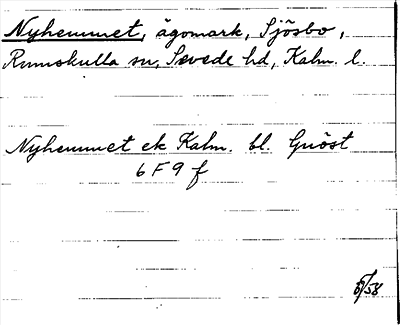 Nyhemmet, ägomark, Sjösbo,
Rumskulla sn, Sevede hd, Kalm. l.
Nyhemmet ek Kalm. bl. Gnöst
6 F 9 f
5/58